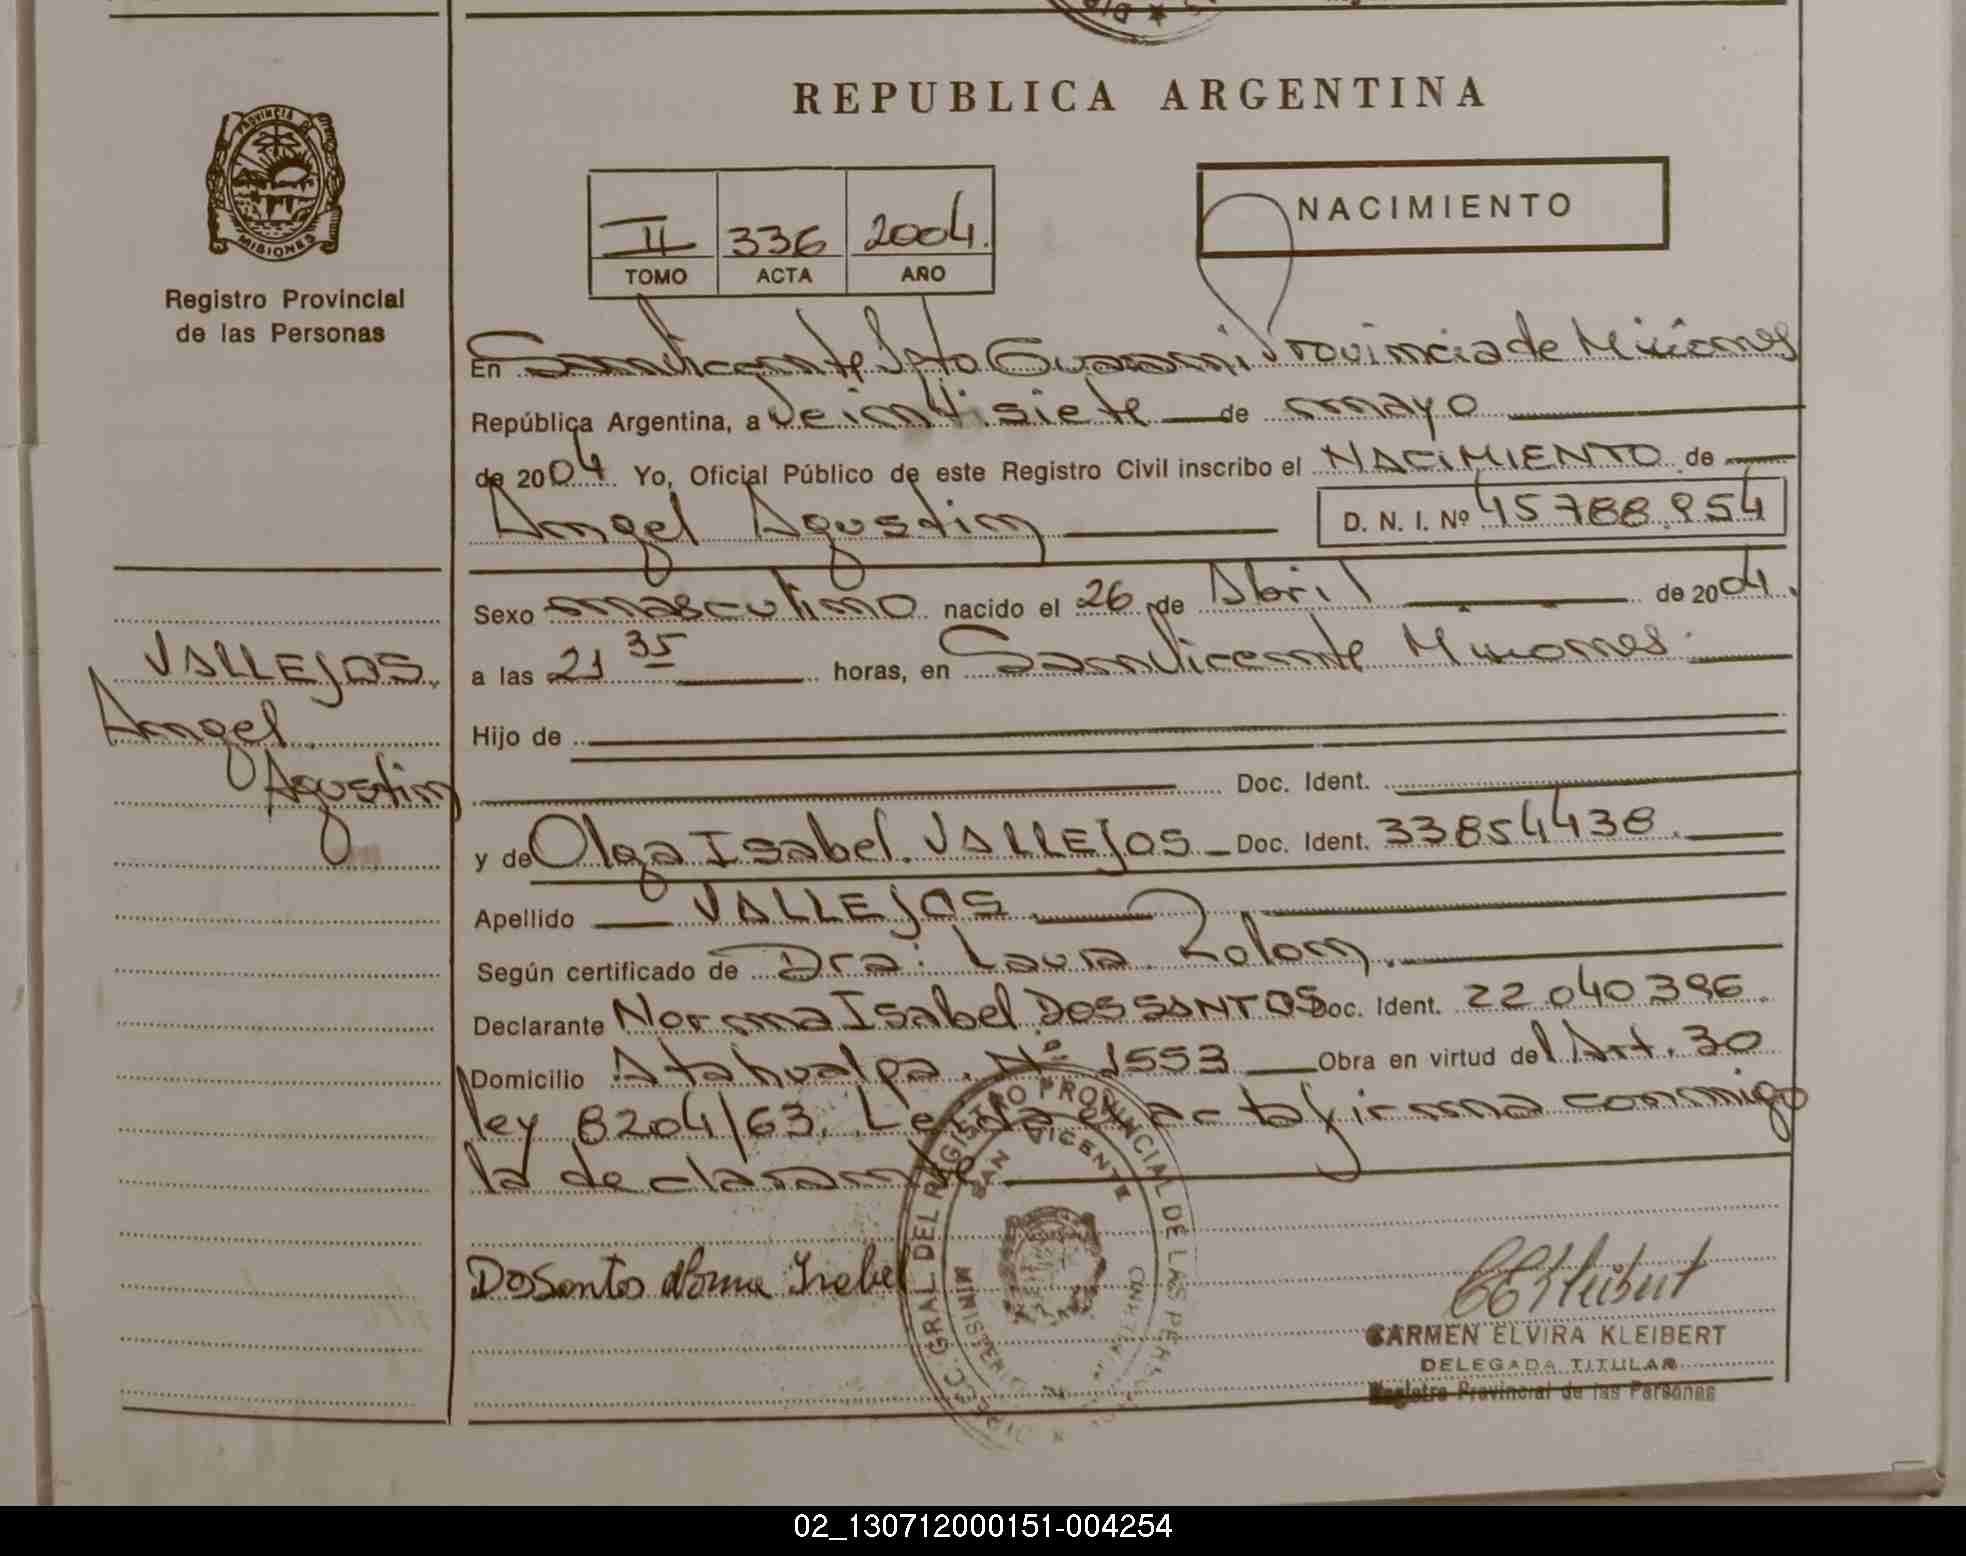 REPUBLICA ARGENTINA
PROVINCIA DE
MISIONES
Registro Provincial
de las Personas
NACIMIENTO
II 336 2004.
TOMO ACTA AÑO
En San Vicente Dpto Guarani Provincia de Misiones
República Argentina, a Veintisiete de mayo
de 2004 Yo, Oficial Público de este Registro Civil inscribo el NACIMIENTO de
Angel Agustin D. N. I. Nº 45788.954
Sexo masculino nacido el 26 de Abril de 2004.
a las 21 35 horas, en San Vicente Misiones.
VALLEJOS.
Angel
Agustin
Hijo de
Doc. Ident.
y de Olga Isabel. VALLEJOS Doc. Ident. 33854438.
Apellido VALLEJOS
Según certificado de Dra: Laura Rolon.
Declarante Norma Isabel DOS SANTOS Doc. Ident. 22.040396.
Domicilio Atahualpa. Nº 1553 Obra en virtud del Art. 30
ley 8204/63. Leida el acta firma conmigo
la declarante
DosSantos Norma Isabel
GRAL DEL REGISTRO PROVINCIAL DE LAS PERSONAS
SAN VICENTE
CARMEN ELVIRA KLEIBERT
DELEGADA TITULAR
Registro Provincial de las Personas
02_130712000151-004254